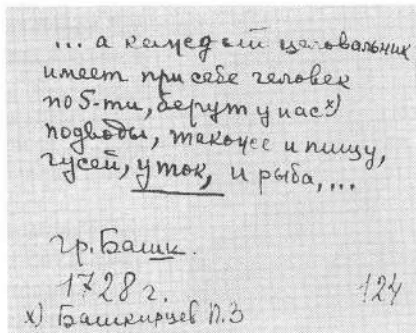 ... а каждый целовальник
имеет при себе человек
по 5-ти, берут у нас х)
подводы, такоже и пищу,
гусей, уток, и рыба,...
гр. Башк.
1728 г.
124
х) Башкирцев П.З